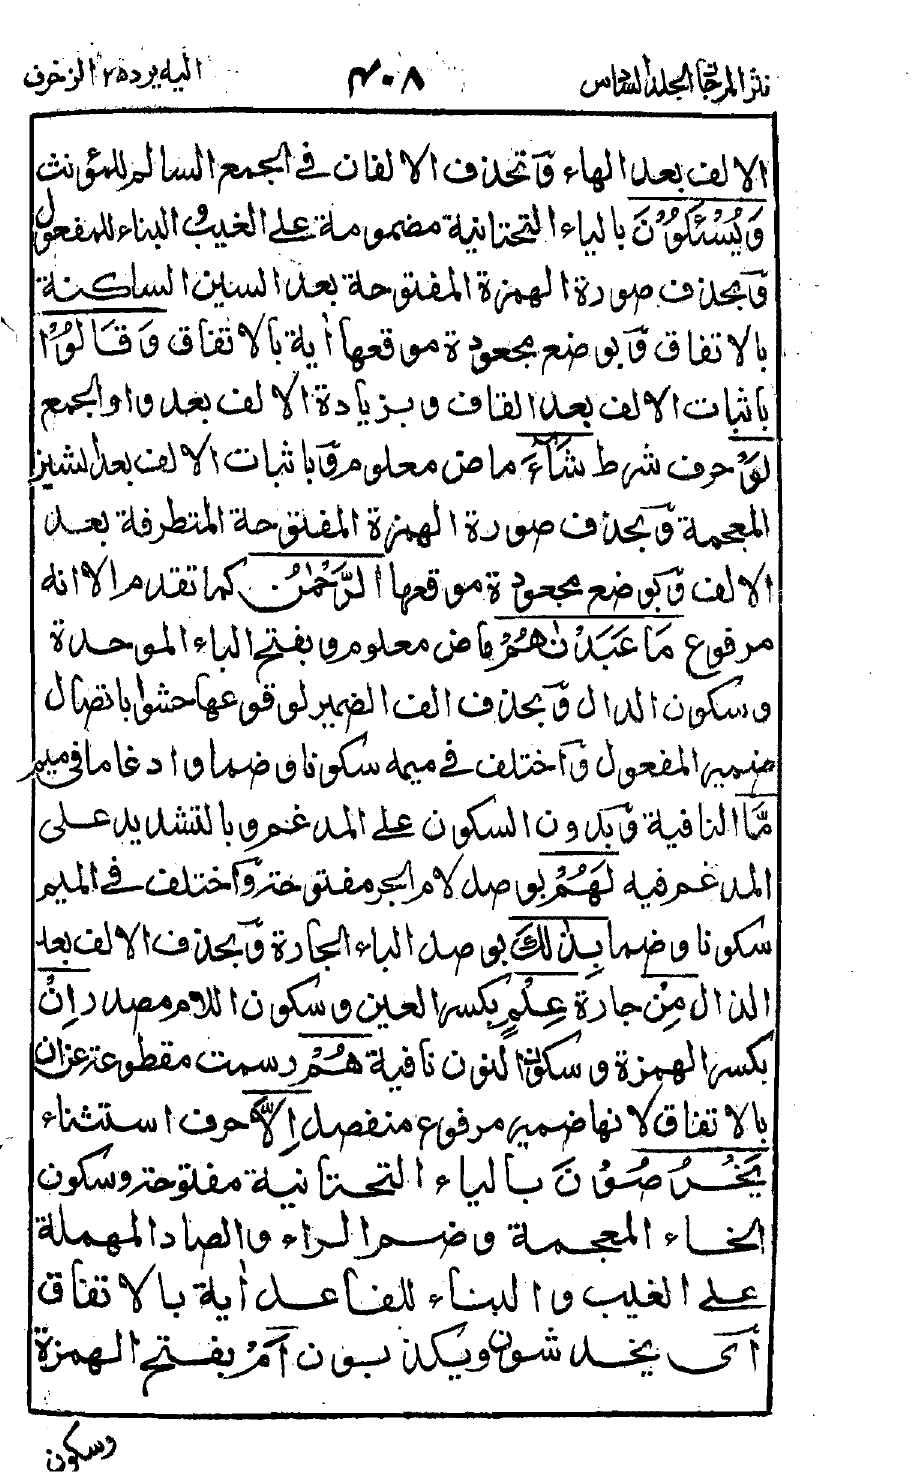 نثر المرجان المجلد السادس ٤٠٨ اليه يرد ٢٥ الزخرف
الالف بعد الهاء وّتحذف الالفان فى الجمع السالم للمؤنث
وَيُسْئَلُوْنَ بالياء التحتانية مضمومة على الغيب والبناء للمفعول
وّبحذف صورة الهمزة المفتوحة بعد السين الساكنة
بالاتفاق وّبوضع مجعودة موقعها اٰية بالاتفاق وَقَالُوْا
باثبات الالف بعد القاف وبزيادة الالف بعد واو الجمع
لَوْ حرف شرط شَآءَ ماض معلوم وّباثبات الالف بعد الشين
المعجمة وّبحذف صورة الهمزة المفتوحة المتطرفة بعد
الالف وّبوضع مجعودة موقعها الرَّحْمٰنُ كما تقدم الا انه
مرفوع مَا عَبَدْنٰهُمْ ماض معلوم وبفتح الباء الموحدة
وسكون الدال وّبحذف الف الضمير لوقوعها حشوا باتصال
ضمير المفعول وّاختلف فى ميمه سكونا وضما وادغاما فى ميم
مَّا النافية وّبدون السكون على المدغم وبالتشديد على
المدغم فيه لَهُمْ بوصل لام الجر مفتوحة وّاختلف فى الميم
سكونا وضما بِذٰلِكَ بوصل الباء الجارة وّبحذف الالف بعد
الذال مِنْ جارة عِلْمٍ بكسر العين وسكون اللام مصدر اِنْ
بكسر الهمزة وسكون النون نافية هُمْ رسمت مقطوعة عن ان
بالاتفاق لانها ضمير مرفوع منفصل اِلَّا حرف استثناء
يَخْرُصُوْنَ بالياء التحتانية مفتوحة وسكون
الخاء المعجمة وضم الراء والصاد المهملة
على الغيب والبناء للفاعل اٰية بالاتفاق
اى يخدشون ويكذبون اَمْ بفتح الهمزة
وسكون